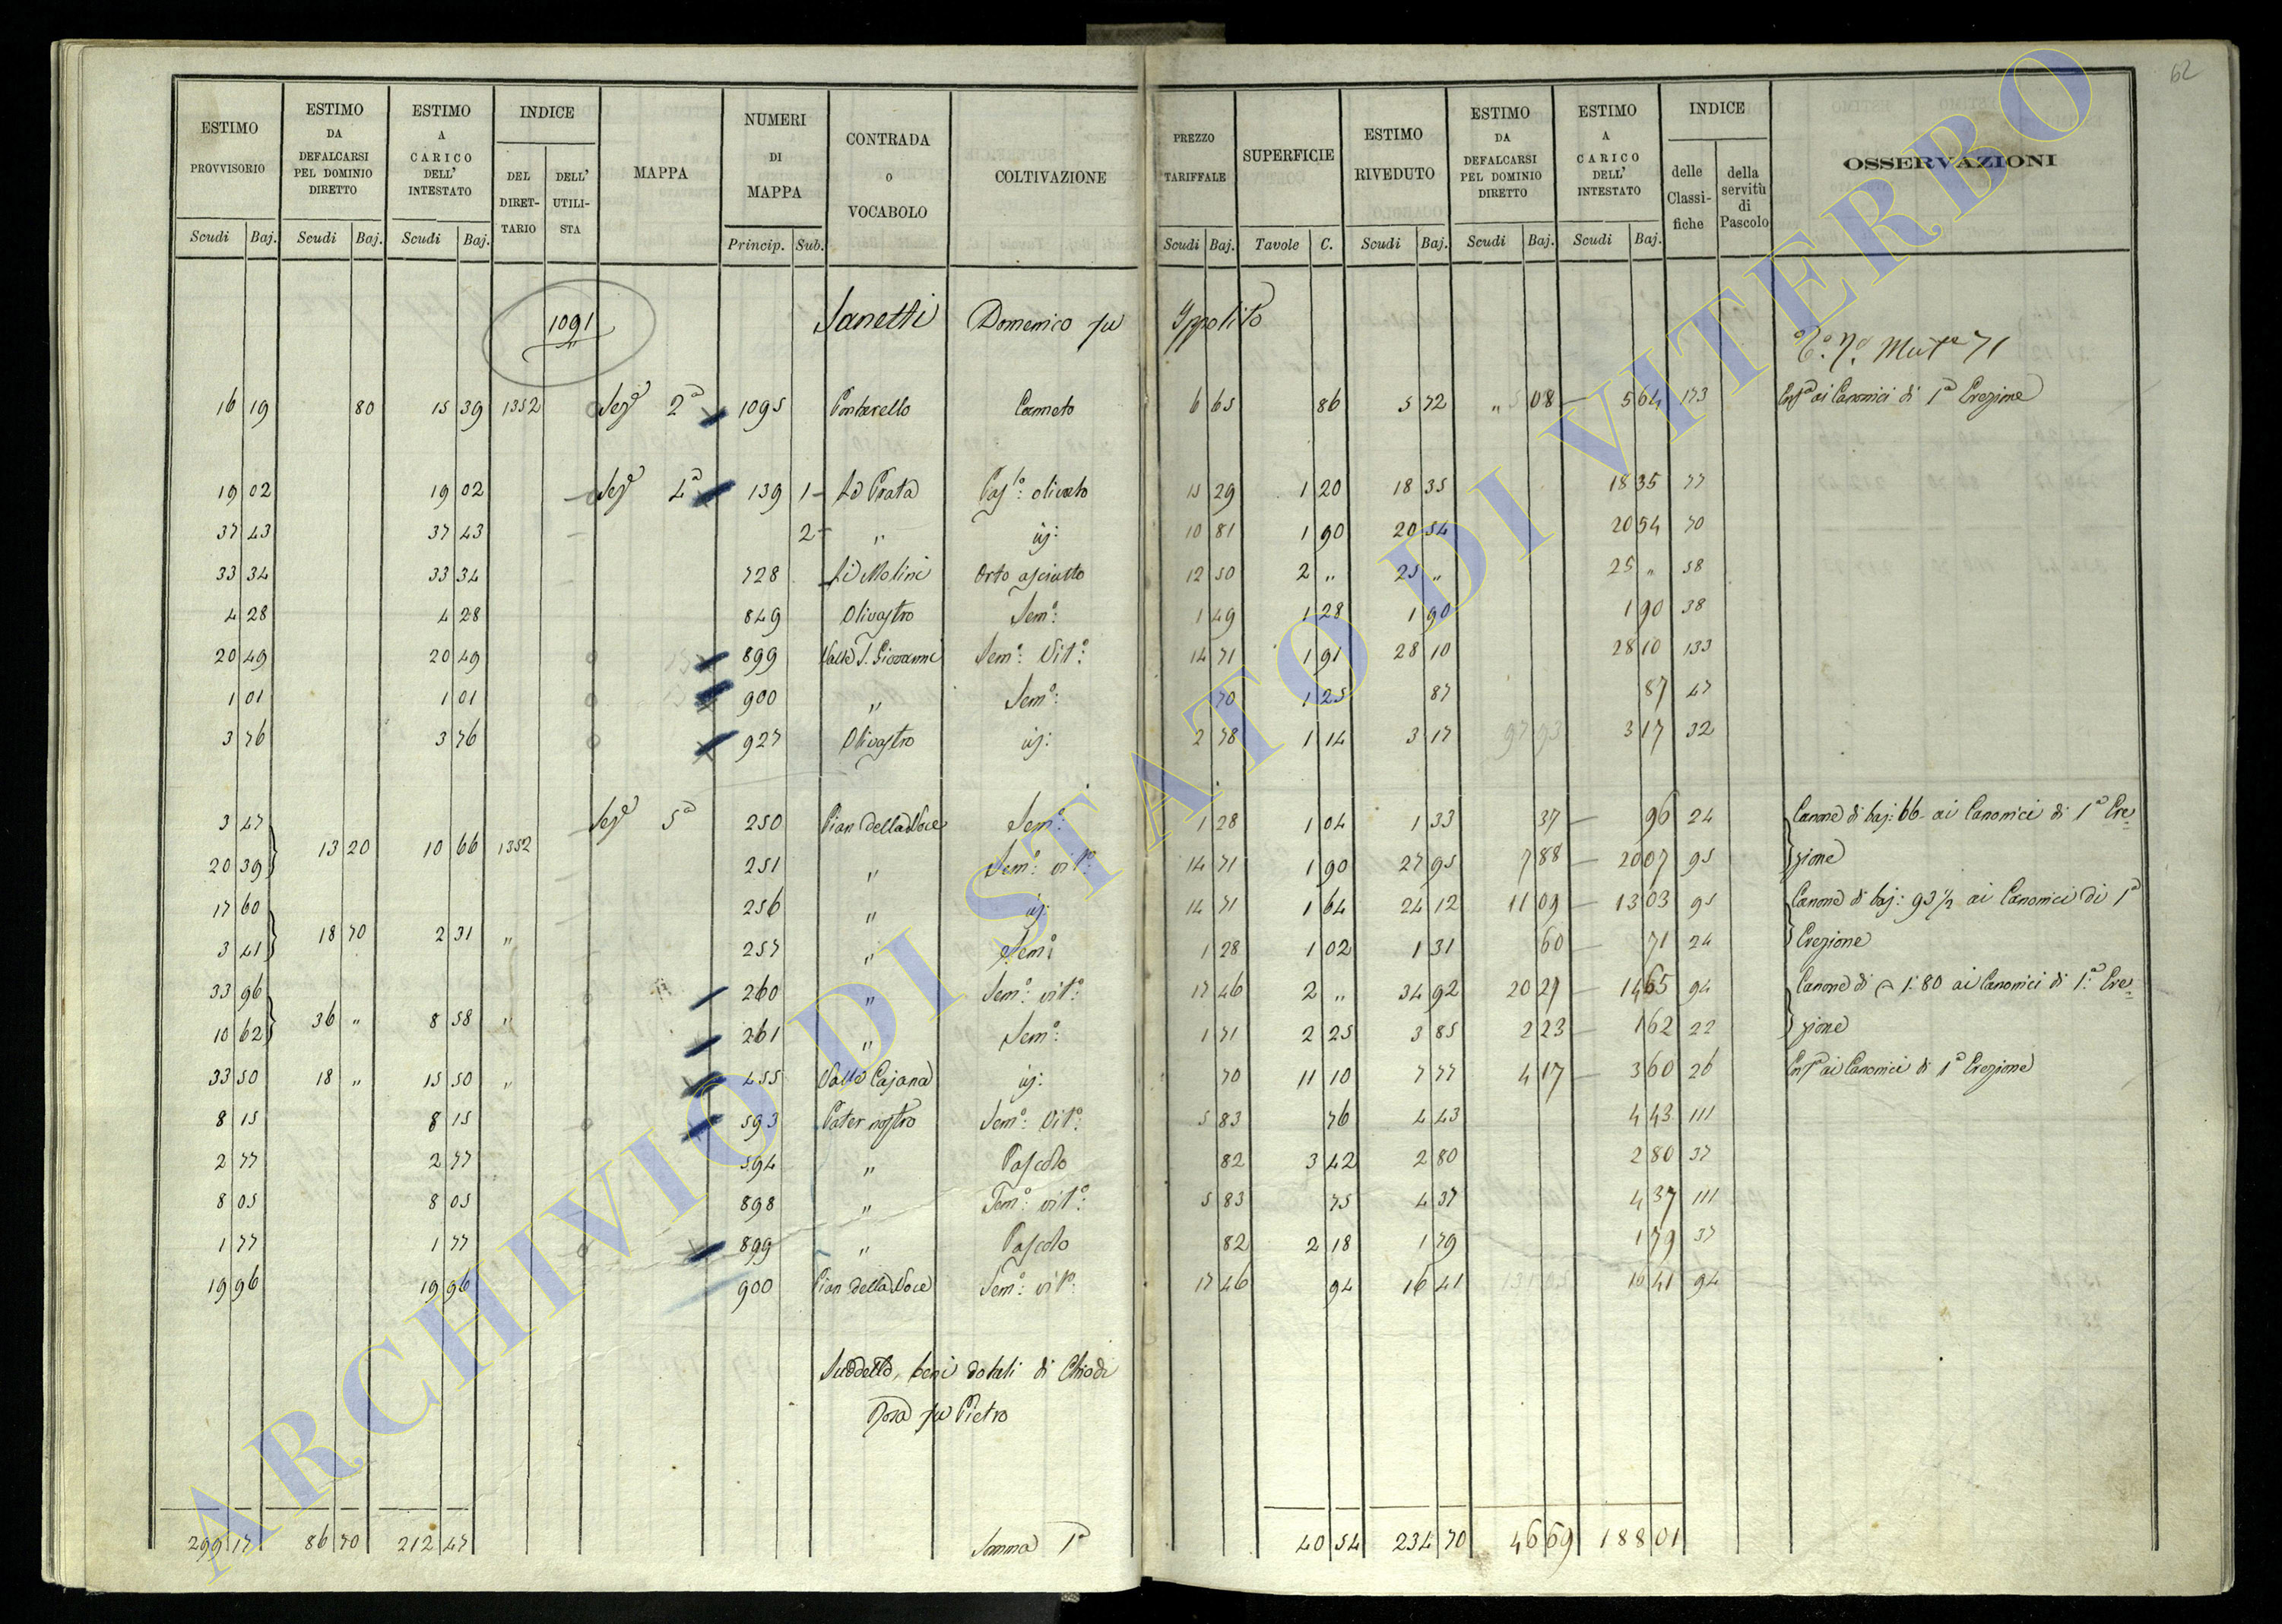 62
ESTIMO PROVVISORIO | ESTIMO DA DEFALCARSI PEL DOMINIO DIRETTO | ESTIMO A CARICO DELL' INTESTATO | INDICE | MAPPA | NUMERI DI MAPPA | CONTRADA O VOCABOLO | COLTIVAZIONE | PREZZO TARIFFALE | SUPERFICIE | ESTIMO RIVEDUTO | ESTIMO DA DEFALCARSI PEL DOMINIO DIRETTO | ESTIMO A CARICO DELL' INTESTATO | INDICE | OSSERVAZIONI
DEL DIRETTARIO | DELL' UTILISTA | delle Classifiche | della servitù di Pascolo
Scudi | Baj. | Scudi | Baj. | Scudi | Baj. | Princip. | Sub. | Scudi | Baj. | Tavole | C. | Scudi | Baj. | Scudi | Baj. | Scudi | Baj.
1091 Domenico fu Ippolito
71
16 19 | 80 | 15 39 | 1352 | Sez.e 2a | 1095 | Canneto | 6 65 | 86 | 5 72 | " 08 | 5 64 | 173 | ai Canonici di 1a Erezione
19 02 | 19 02 | Sez.e 4a | 139 | 1 | Le Prata | Pas.lo olivato | 15 29 | 1 20 | 18 35 | 18 35 | 77
37 43 | 37 43 | 2 | " | 10 81 | 1 90 | 20 54 | 20 54 | 70
33 34 | 33 34 | 728 | Li Molini | Orto asciutto | 12 50 | 2 " | 25 " | 25 " | 58
4 28 | 4 28 | 849 | Olivastro | Sem.o: | 1 49 | 1 28 | 1 90 | 1 90 | 38
20 49 | 20 49 | 899 | Valle S. Giovanni | Sem.o: Vit.o: | 14 71 | 1 91 | 28 10 | 28 10 | 133
1 01 | 1 01 | 900 | " | Sem.o: | 70 | 1 25 | 87 | 87 | 47
3 76 | 3 76 | 927 | Olivastro | 2 78 | 1 14 | 3 17 | 3 17 | 32
3 47 | Sez.e 5a | 250 | Pian della Noce | Sem.o: | 1 28 | 1 04 | 1 33 | 37 | 96 | 24 | Canone di baj: 66 ai Canonici di 1a Ere=
13 20 | 10 66 | 1352
20 39 | 251 | " | Sem.o: vit.o: | 14 71 | 1 90 | 27 95 | 7 88 | 20 07 | 95 | zione
17 60 | 256 | " | 14 71 | 1 64 | 24 12 | 11 09 | 13 03 | 95 | Canone di baj: 93 1/2 ai Canonici di 1a
18 70 | 2 31 | "
3 41 | 257 | " | Sem.o | 1 28 | 1 02 | 1 31 | 60 | 71 | 24 | Erezione
33 96 | 260 | " | Sem.o: vit.o: | 17 46 | 2 " | 34 92 | 20 27 | 14 65 | 94 | Canone di 1:80 ai Canonici di 1a Ere=
36 " | 8 58 | "
10 62 | 261 | " | Sem.o: | 1 71 | 2 25 | 3 85 | 2 23 | 1 62 | 22 | zione
33 50 | 18 " | 15 50 | " | 455 | Valle Cajana | 70 | 11 10 | 7 77 | 4 17 | 3 60 | 26 | ai Canonici di 1a Erezione
8 15 | 8 15 | 593 | Pater nostro | Sem.o: Vit.o: | 5 83 | 76 | 4 43 | 4 43 | 111
2 77 | 2 77 | 594 | " | Pascolo | 82 | 3 42 | 2 80 | 2 80 | 37
8 05 | 8 05 | 898 | " | Sem.o: vit.o: | 5 83 | 75 | 4 37 | 4 37 | 111
1 77 | 1 77 | 899 | " | Pascolo | 82 | 2 18 | 1 79 | 1 79 | 37
19 96 | 19 96 | 900 | Pian della Noce | Sem.o: vit.o: | 17 46 | 94 | 16 41 | 16 41 | 94
Suddetto, beni dotali di Chiodi
Rosa fu Pietro
299 17 | 86 70 | 212 47 | Somma | 40 54 | 234 70 | 46 69 | 188 01
ARCHIVIO DI STATO DI VITERBO